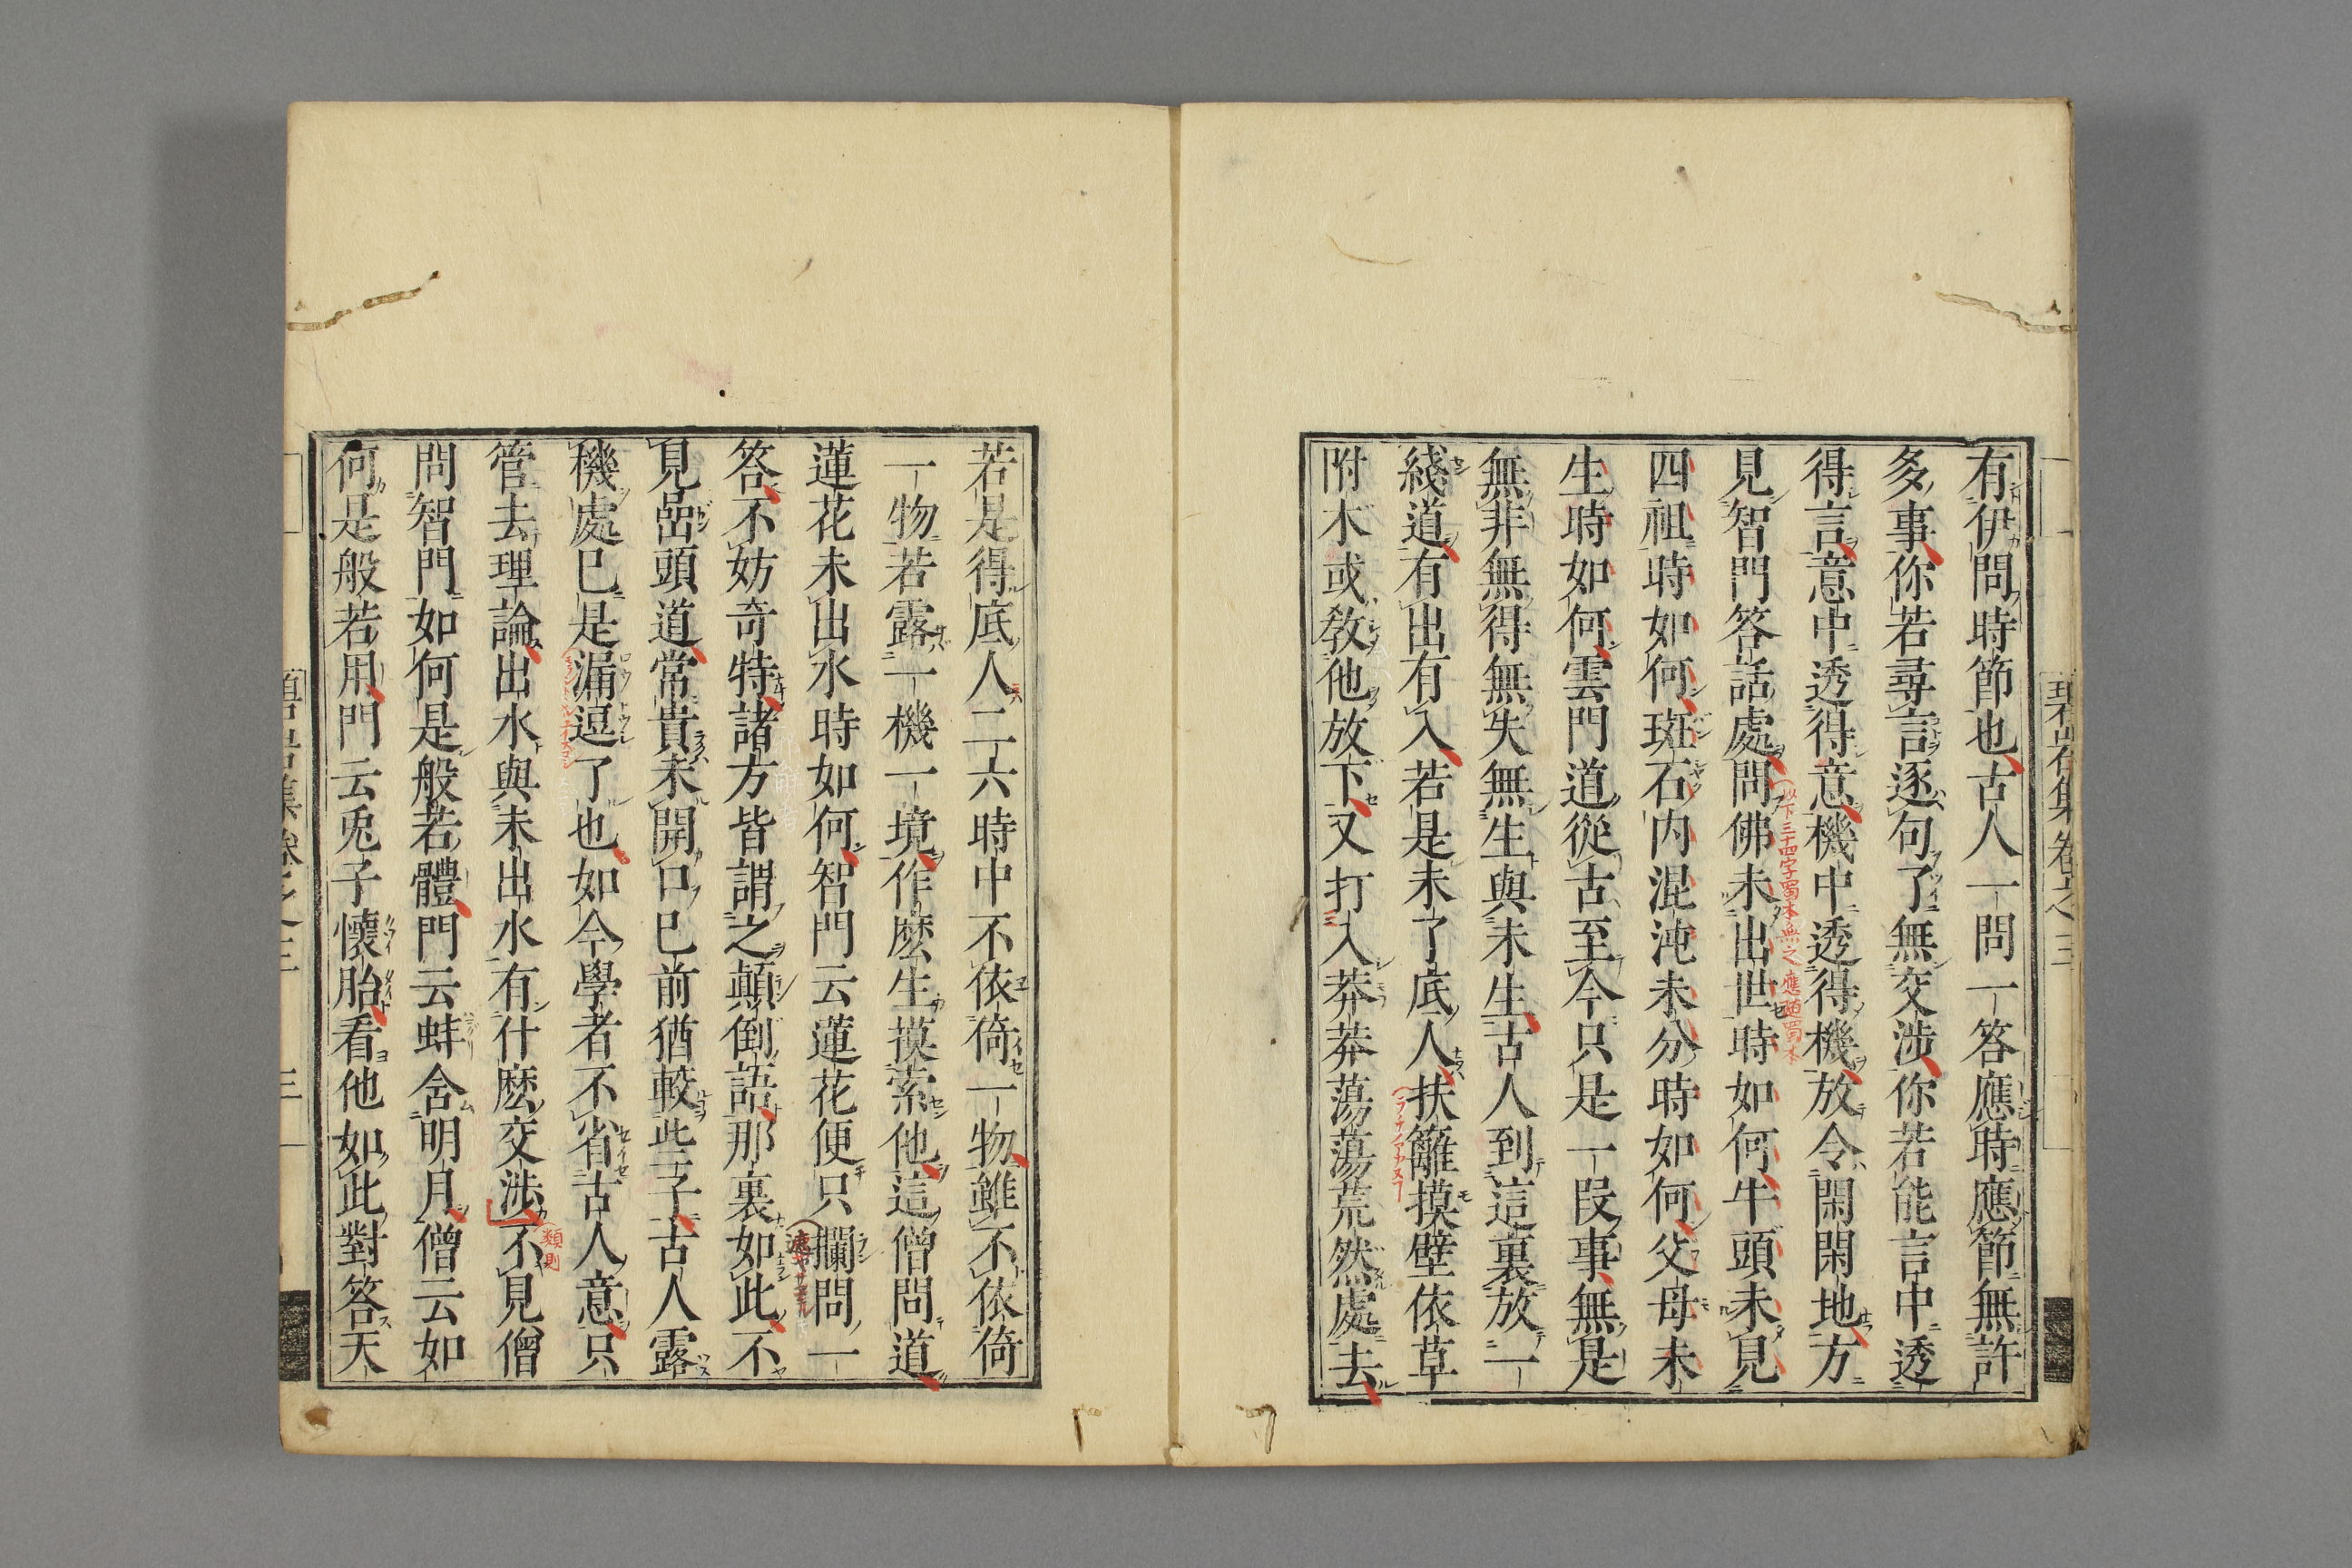 有伊問時節也古人一問一答應時應節無許
多事你若尋言逐句了無交涉你若能言中透
得言意中透得意機中透得機放令閑閑地方
見智門答話處問佛未出世時如何牛頭未見
以下三十四字蜀本無之 應隨蜀本
四祖時如何斑石內混沌未分時如何父母未
生時如何雲門道從古至今只是一段事無是
無非無得無失無生與未生古人到這裏放一
綫道有出有入若是未了底人扶籬摸壁依草
附木或教他放下又打入莽莽蕩蕩荒然處去
碧岩集卷之三
若是得底人二六時中不依倚一物雖不依倚
一物若露一機一境作麼生摸索他這僧問道
蓮花未出水時如何智門云蓮花便只攔問一
答不妨奇特諸方皆謂之顛倒語那裏如此不
見嵒頭道常貴未開口已前猶較些子古人露
機處已是漏逗了也如今學者不省古人意只
管去理論出水與未出水有什麼交涉不見僧
類則
問智門如何是般若體門云蚌含明月僧云如
何是般若用門云兎子懷胎看他如此對答天
三